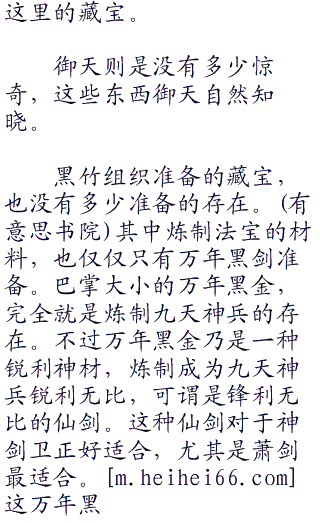 这里的藏宝。
御天则是没有多少惊
奇，这些东西御天自然知
晓。
黑竹组织准备的藏宝，
也没有多少准备的存在。(有
意思书院)其中炼制法宝的材
料，也仅仅只有万年黑剑准
备。巴掌大小的万年黑金，
完全就是炼制九天神兵的存
在。不过万年黑金乃是一种
锐利神材，炼制成为九天神
兵锐利无比，可谓是锋利无
比的仙剑。这种仙剑对于神
剑卫正好适合，尤其是萧剑
最适合。[m.heihei66.com]
这万年黑